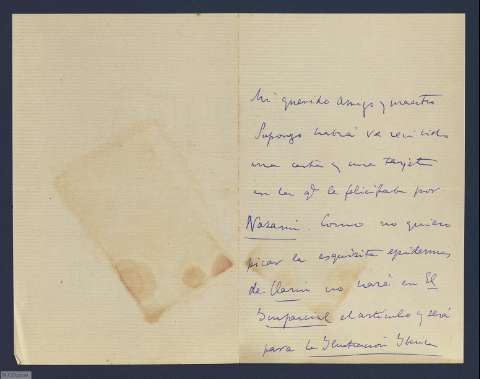 Mi querido amigo y maestro
Supongo habrá va recivido
una carta y una tarjeta
en las qe le felicitaba por
Nazarin. Como no quiero
picar la esquisita epidermis
de Clarin no haré en El
Imparcial el articulo y será
para la Ilustración Iberica